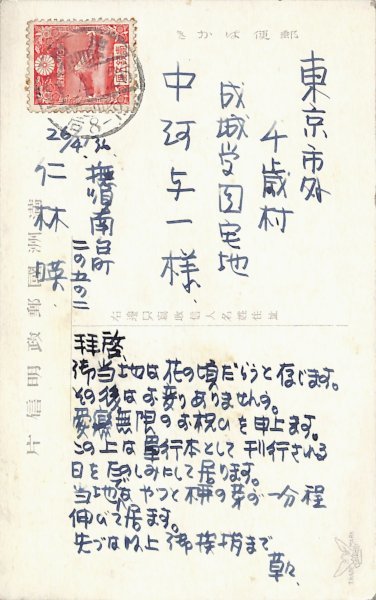 きかは便郵
東京市外
千歳村
成城学園宅地
中河与一様
26/4/36
撫順南台町
二の五の二
仁林暎
右邊只寫收信人名姓住址
片信明政郵國洲滿
拝啓
御当地は花の頃だらうと存じます。
その後はお変りありませんか。
愛恋無限のお祝ひを申上ます。
この上は単行本として刊行される
日をたのしみにして居ります。
当地はやつと柳の芽が一分程
伸びて居ます。
先づは以上御挨拶まで
草々
TRADE MARK